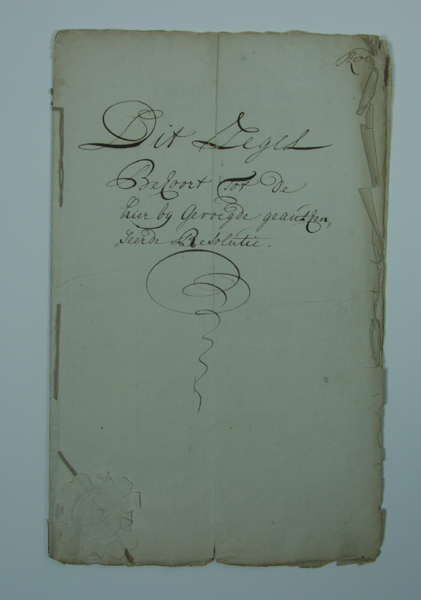 Dit Zegel
Behoort Tot de
hier by Gevoegde geauthen,
seerde Resolutie.